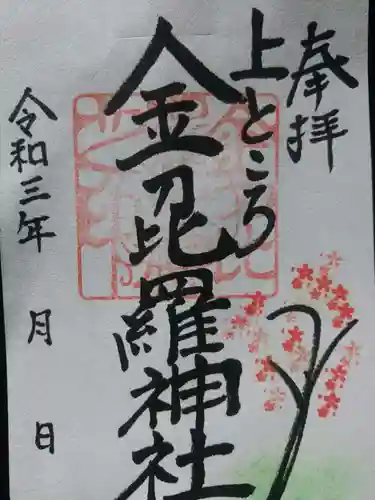 奉拝
上ところ
金毘羅神社
令和三年 月 日